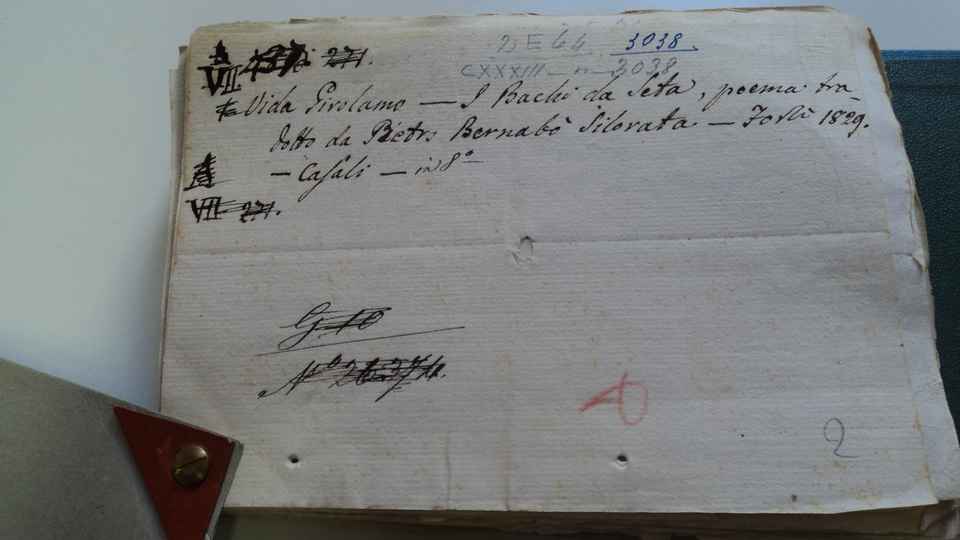 A 271.
VII 23 E 64. 3038.
CXXXIII - n - 3038
Vida Girolamo — I Bachi da Seta, poema tra-
dotto da Pietro Bernabò Silorata — Forlì 1829.
A — Casali — in 8°
VII 271.
G. 10
N°
2